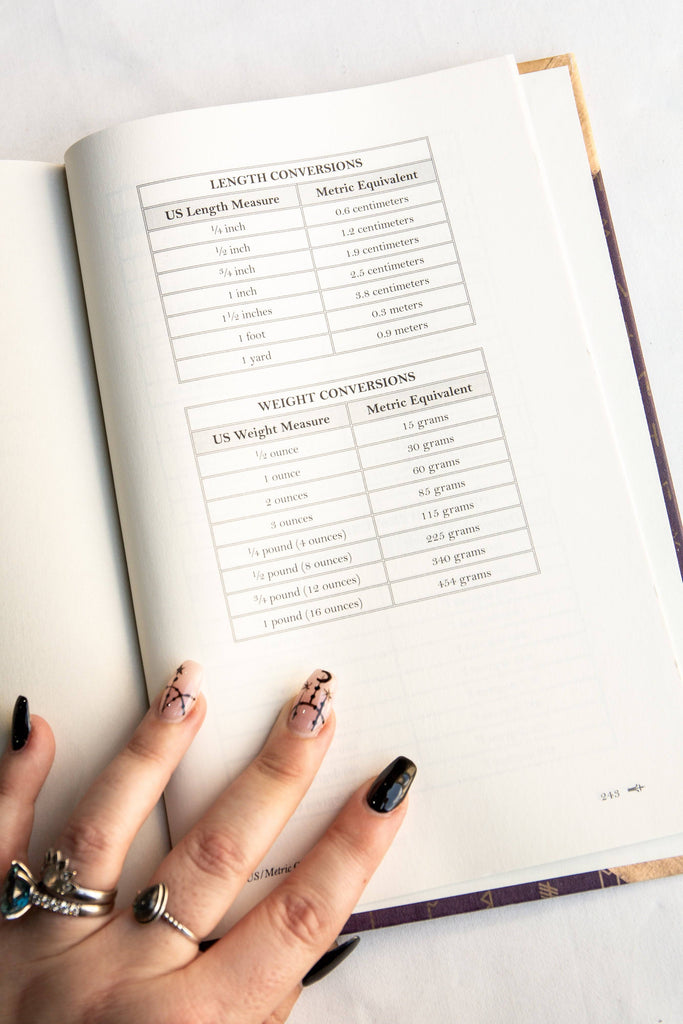 LENGTH CONVERSIONS
US Length Measure Metric Equivalent
¼ inch 0.6 centimeters
½ inch 1.2 centimeters
¾ inch 1.9 centimeters
1 inch 2.5 centimeters
1½ inches 3.8 centimeters
1 foot 0.3 meters
1 yard 0.9 meters
WEIGHT CONVERSIONS
US Weight Measure Metric Equivalent
½ ounce 15 grams
1 ounce 30 grams
2 ounces 60 grams
3 ounces 85 grams
¼ pound (4 ounces) 115 grams
½ pound (8 ounces) 225 grams
¾ pound (12 ounces) 340 grams
1 pound (16 ounces) 454 grams
243
US/Metric